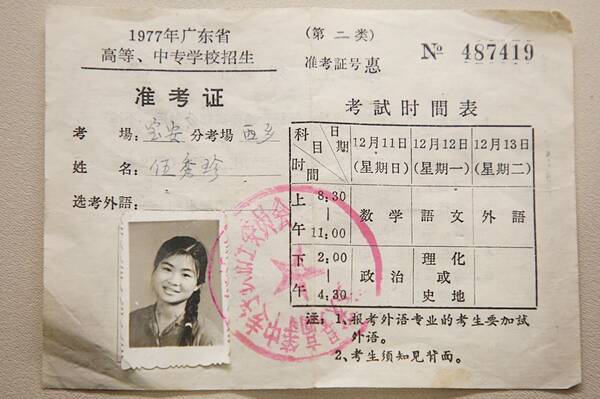 1977年广东省
高等、中专学校招生
准考证
考場：宝安 分考場 西乡
姓名：伍秀珍
选考外語：
(第二类)
准考証号惠 № 487419
考試时間表
科目 日期 时間 12月11日(星期日) 12月12日(星期一) 12月13日(星期二)
上午 8.30—11:00 数学 語文 外語
下午 2:00—4.30 政治 理化或史地
注：1、报考外语专业的考生要加試
外语。
2、考生须知见背面。